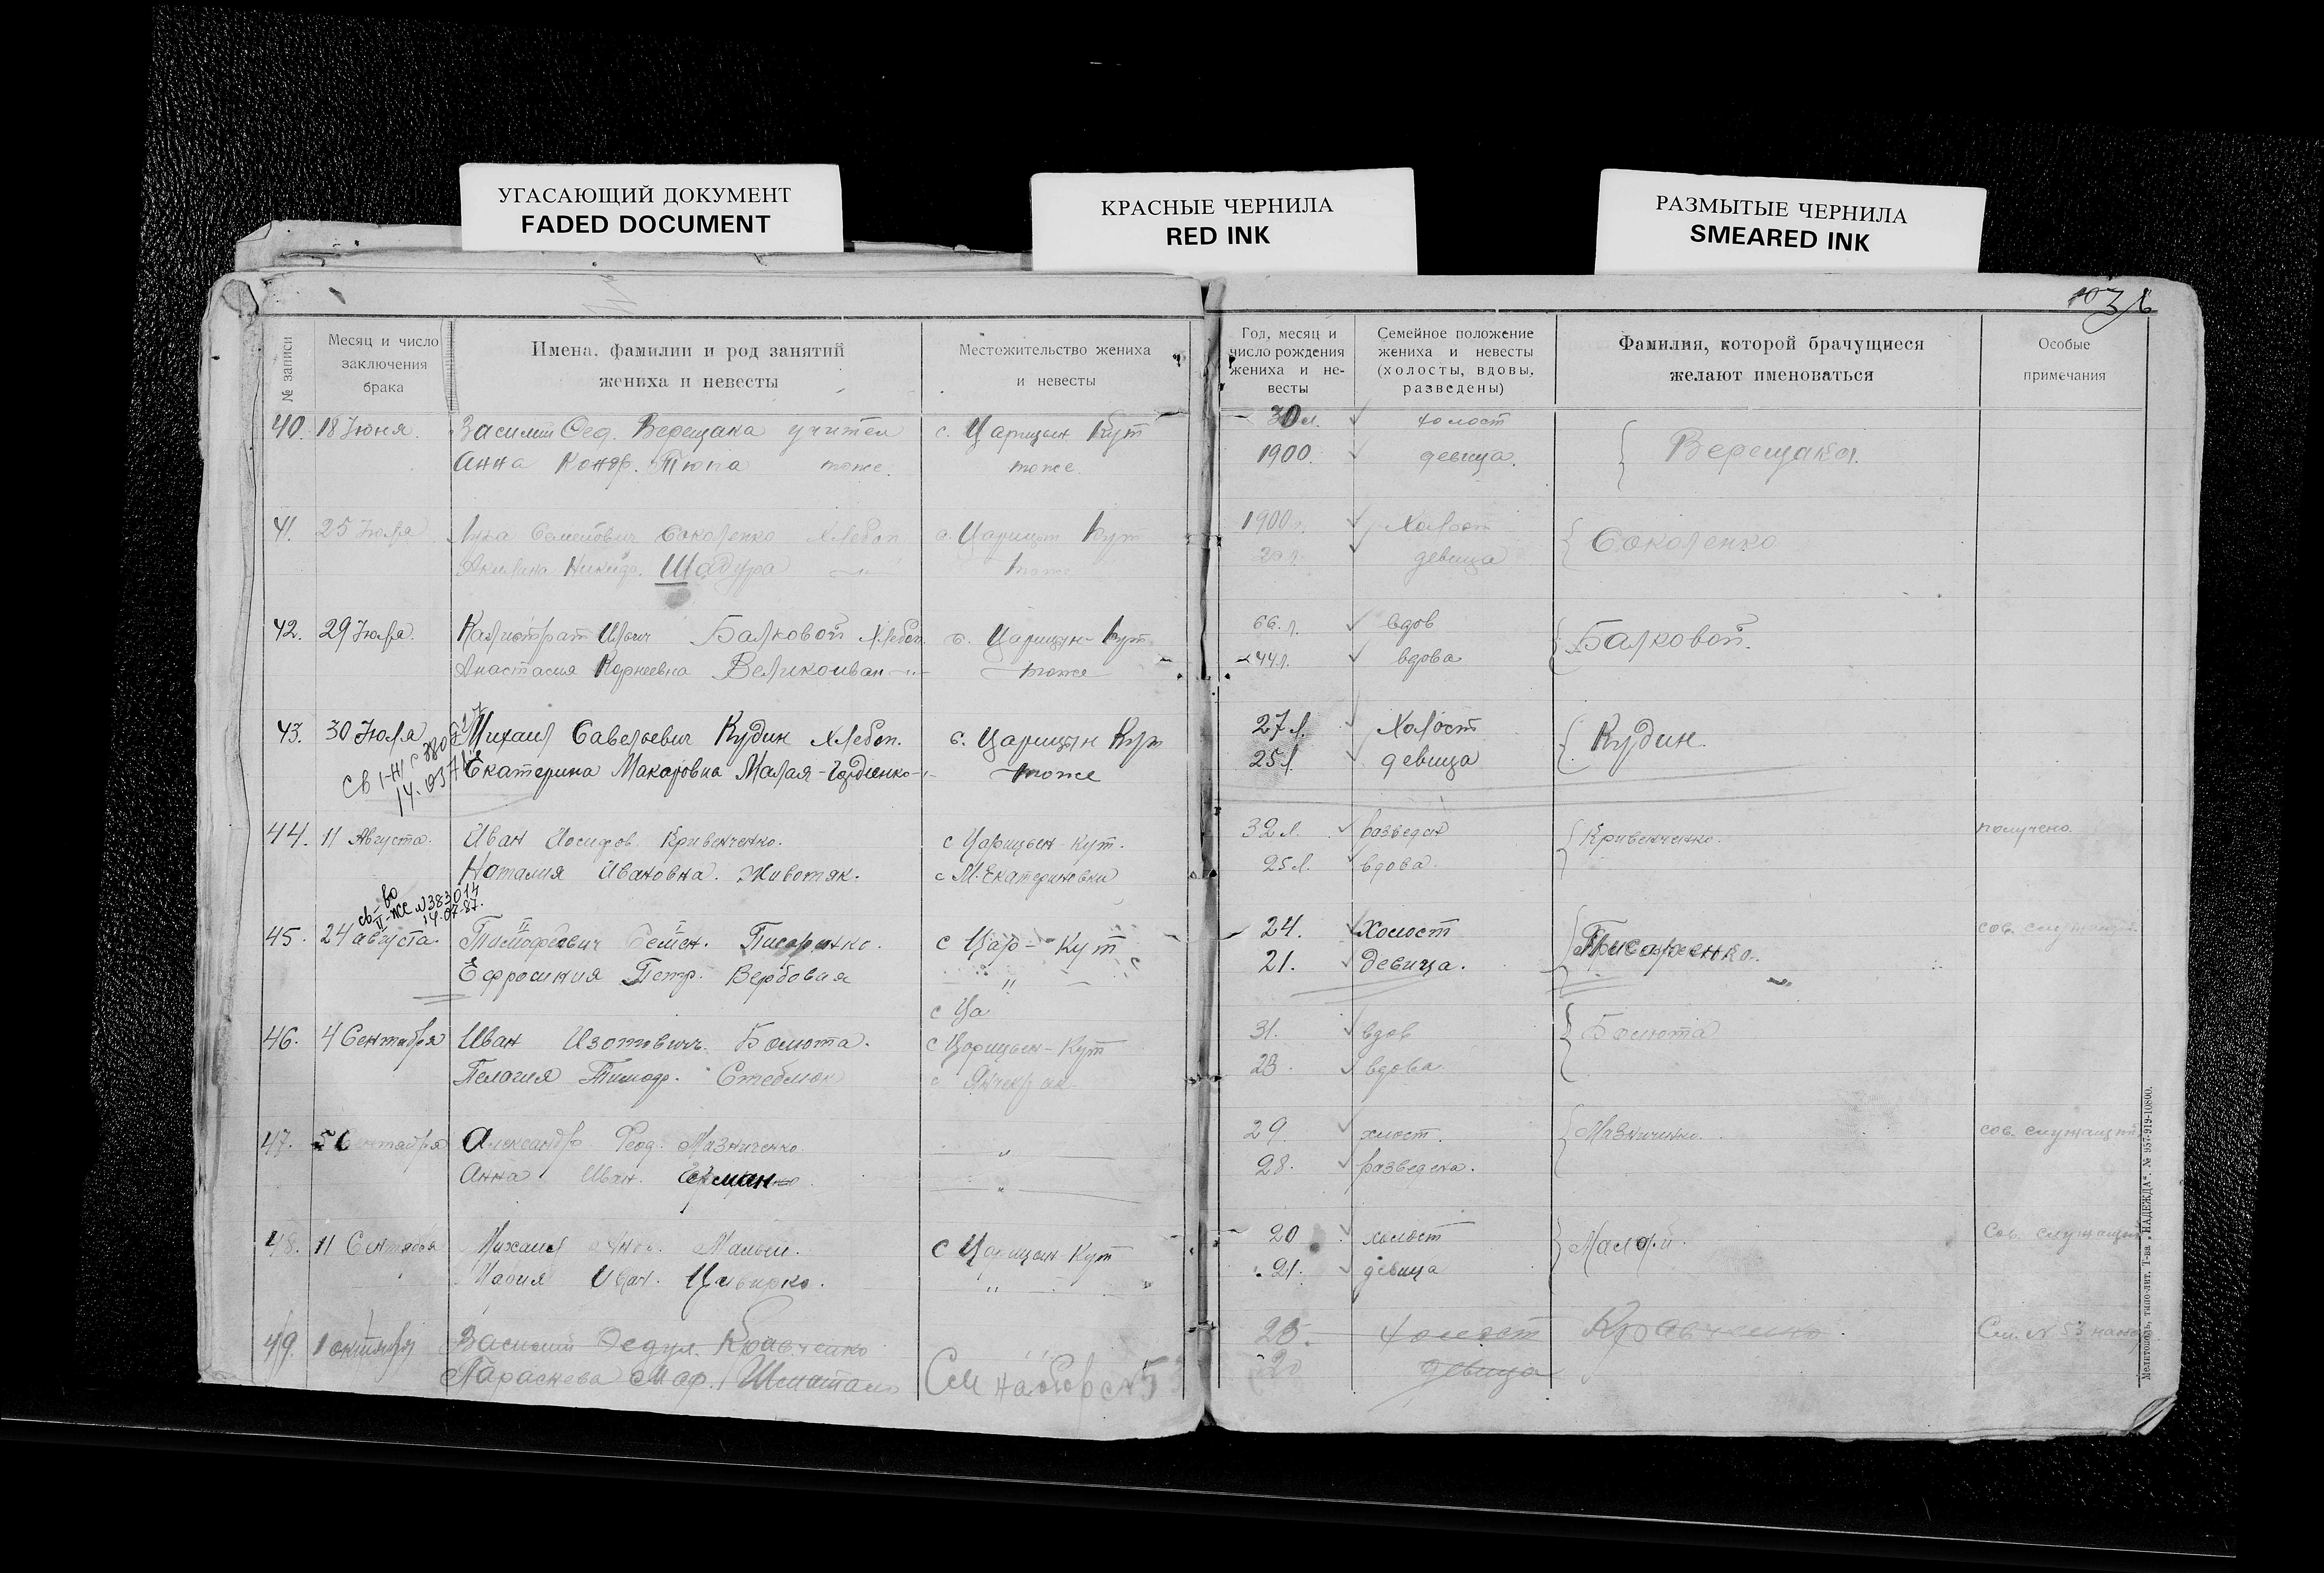 УГАСАЮЩИЙ ДОКУМЕНТ
FADED DOCUMENT
КРАСНЫЕ ЧЕРНИЛА
RED INK
РАЗМЫТЫЕ ЧЕРНИЛА
SMEARED INK
№ записи
Месяц и число заключения брака
Имена, фамилии и род занятий жениха и невесты
Местожительство жениха и невесты
Год, месяц и число рождения жениха и не-весты
Семейное положение жениха и невесты (холосты, вдовы, разведены)
Фамилия, которой брачущиеся желают именоваться
Особые примечания
40. 18 Июня. Василий Фед. Верещака учител с. Царицын Кут 30 л. холост
Анна Кондр. Тюпа тоже. тоже. 1900. девица. Верещака.
41. 25 Июля Семенович Соколенко Хлебоп с. Царицын Кут 1900 г. Холост
Акилина Шадура тоже 20 л. девица Соколенко
42. 29 Июля. Калистрат Балковой Хлебоп. с. Царицын-Кут 66. л. вдов
Анастасия Корнеевна Великоиван тоже 44 л. вдова Балковой.
43. 30 Июля Михаил Савельевич Кудин Хлебоп. с. Царицын Кут 27 л. Холост
Екатерина Макаровна Малая-Гордиенко тоже 25 л. девица Кудин.
44. 11 Августа. Иван Иосифов. Кривенченко. с Царицын-Кут. 32 л. разведен Кривенченко. получено.
Наталия Ивановна. Животяк. с М. Екатериновки 25 л. вдова.
св-во
II-ЖС № 383014
14.07.87.
45. 24 августа. Тимофеевич Семен. Писаренко. с Цар- Кут 24. Холост Писаренко. сов. служащий.
Ефросиния Петр. Вербовая " 21. девица.
с Ца
46. 4 Сентября Иван Изотович. Болюта. с Царицын-Кут 31. вдов Болюта
Пелагия Тимоф. Стеблюк с Янчекрак 23. вдова.
47. 5 Сентября Александр Феод. Мазниченко. " 29 хлост. Мазниченко. сов. служащий.
Анна Иван. " 28. разведена.
48. 11 Сентября Михаил Малый. с Царицын Кут 20 холост Малый. Сов. служащий
Мария Иван. " 21. девица
49. 1 октября Василий Федул. Кравченко 25. холост Кравченко. См. № 53 на обор.
Параскева Мар. 20 девица
См на обор № 53
Мелитополь, типо-лит. Т-ва „НАДЕЖДА". № 957-919-10800.